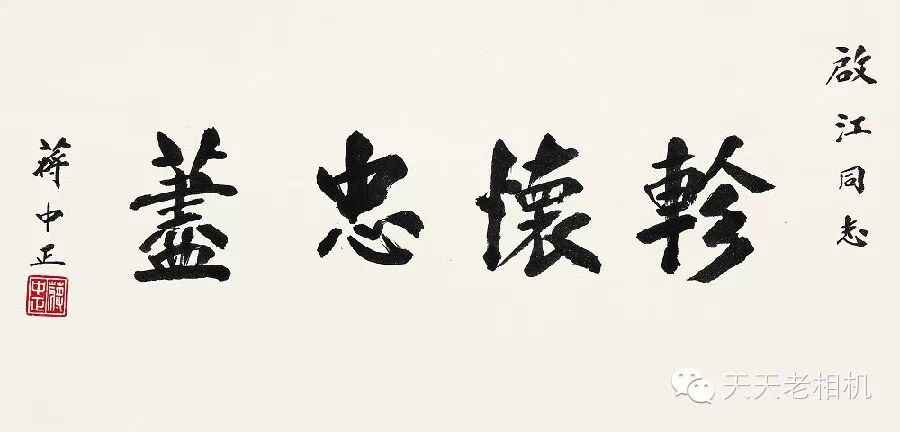 啟江同志
軫懷忠藎
蔣中正
蔣中正
天天老相机